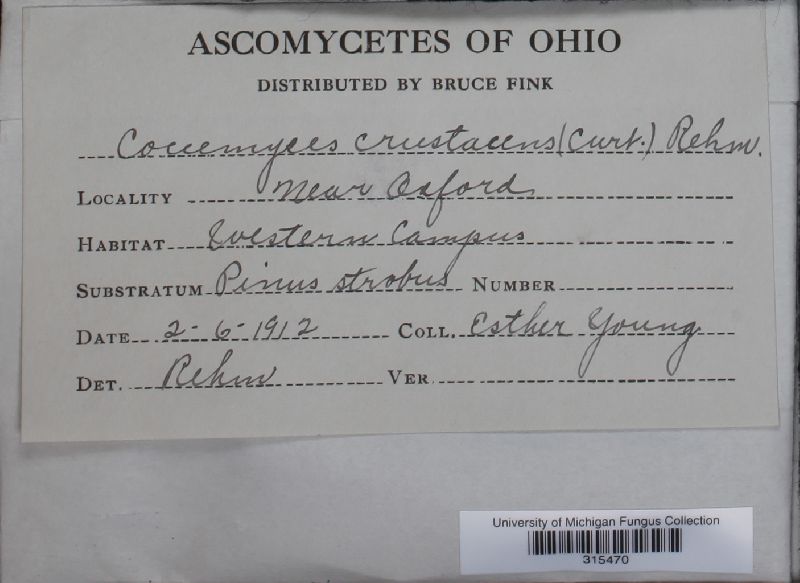 ASCOMYCETES OF OHIO
DISTRIBUTED BY BRUCE FINK
crustaceus (Curt.) Rehm.
LOCALITY Near Oxford
HABITAT Western Campus
SUBSTRATUM Pinus strobus NUMBER
DATE 2-6-1912 COLL. Esther Young
DET. Rehm VER
University of Michigan Fungus Collection
315470